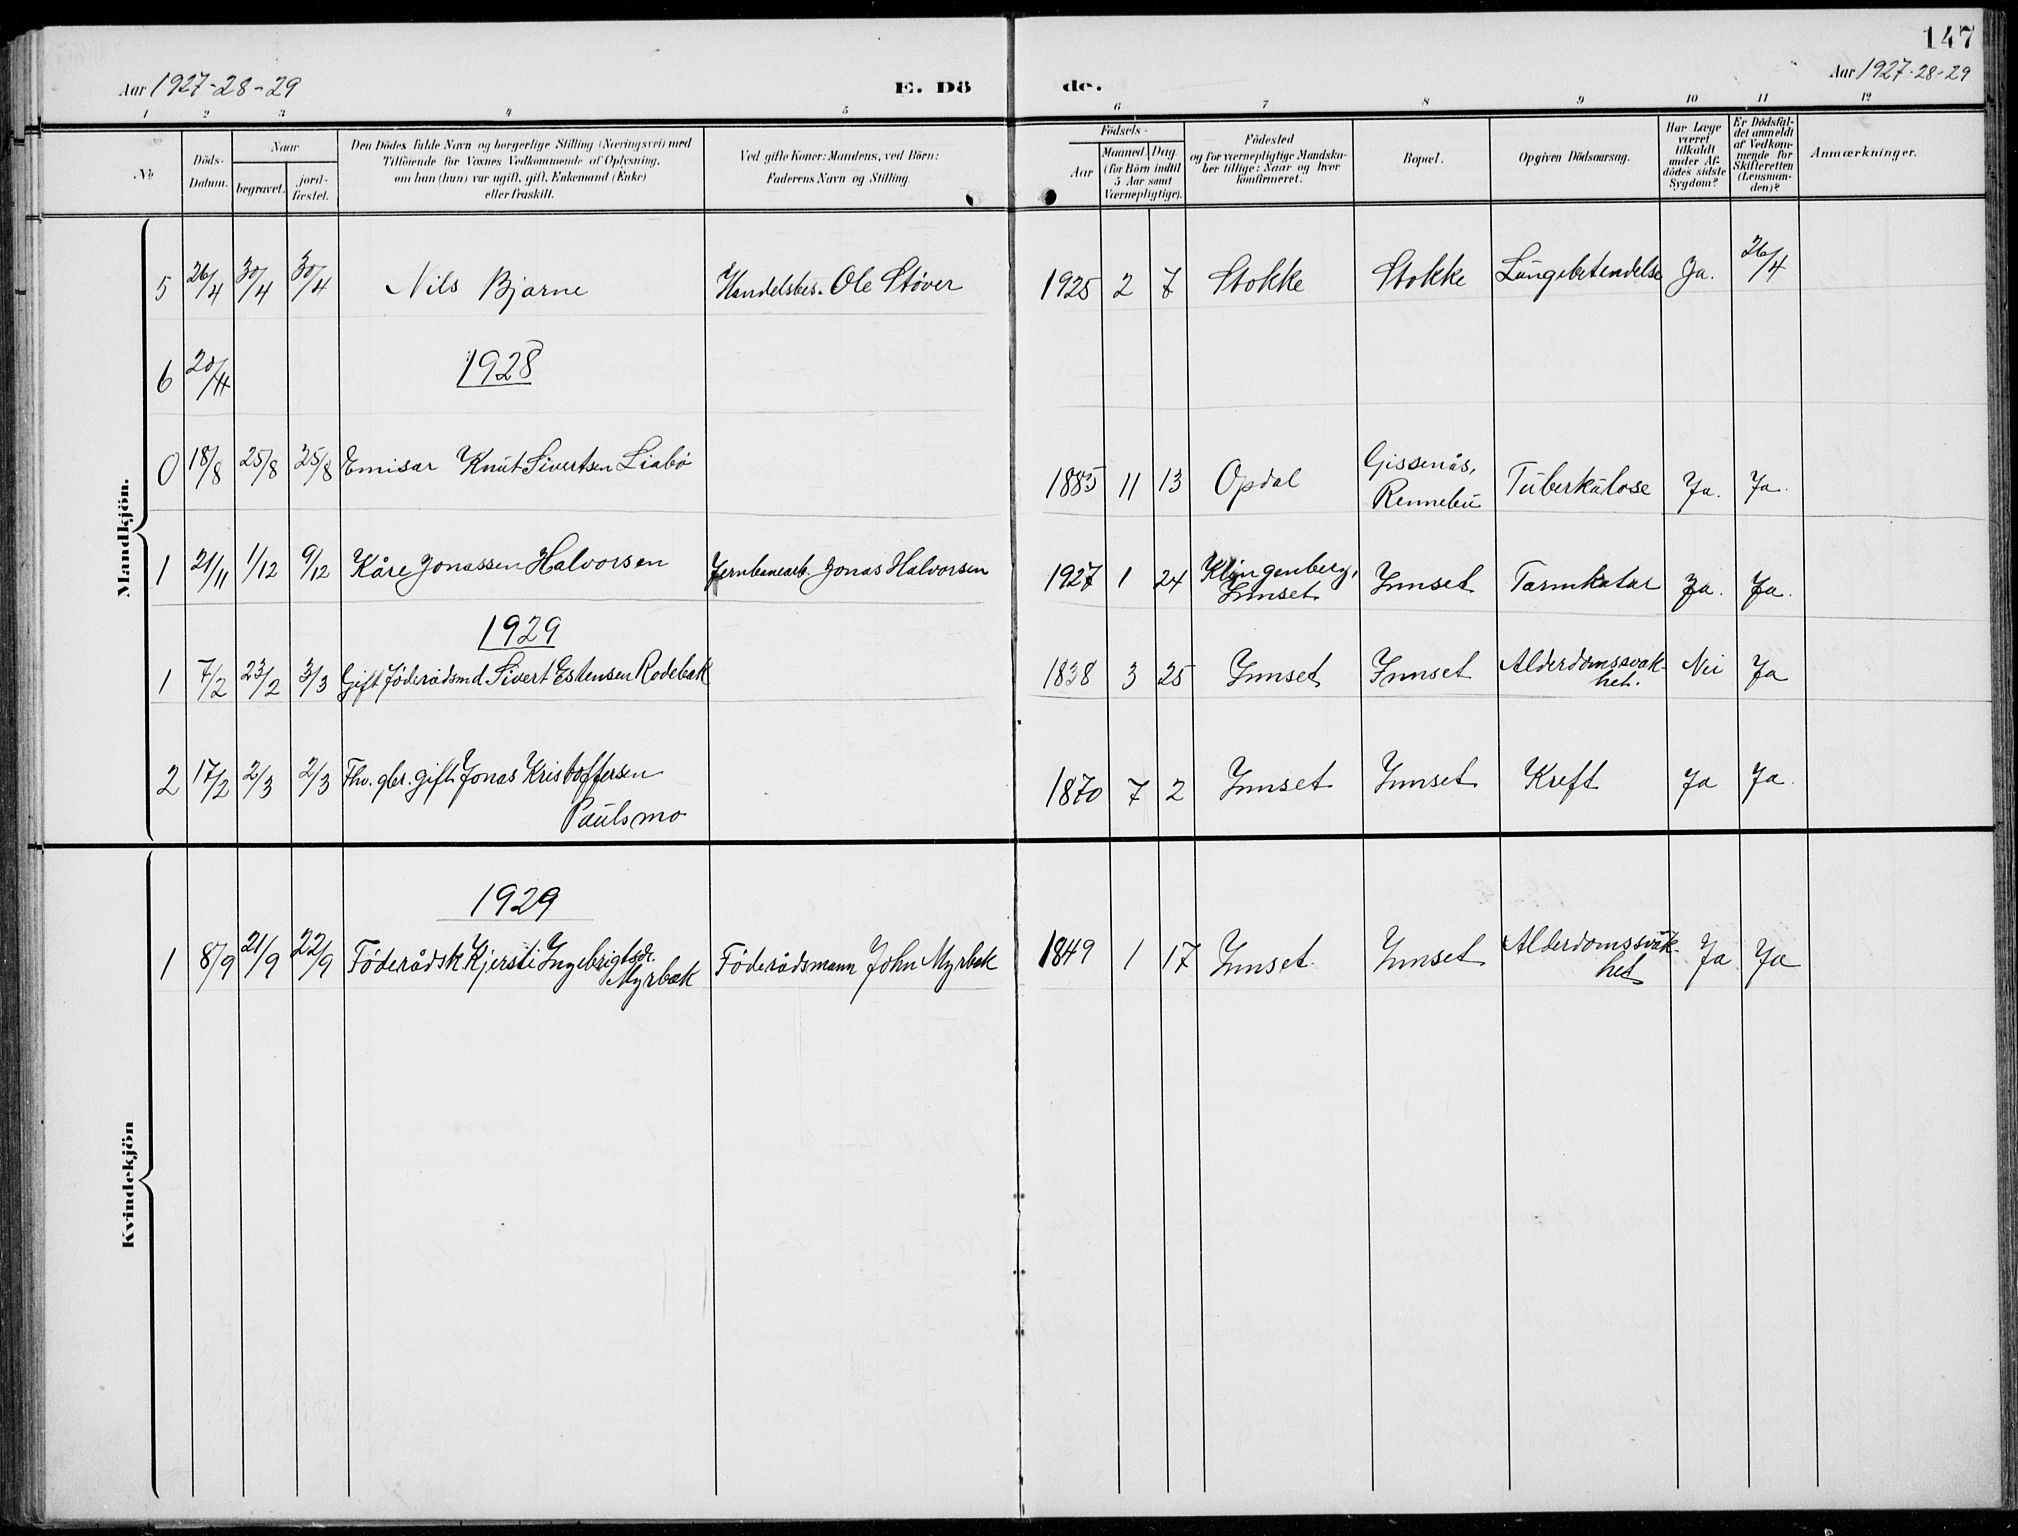 147
Aar 1927-28-29
E. Dö
de.
Aar 1927-28-29
1 2 3 4 5 6 7 8 9 10 11 12
No
Döds-
Datum.
Naar
begravet.
jord-
fæstet.
Den Dödes fulde Navn og borgerlige Stilling (Næringsvei) med
Tilföiende for Voxnes Vedkommende af Oplysning,
om han (hun) var ugift, gift, Enkemand (Enke)
eller fraskilt.
Ved gifte Koner: Mandens, ved Börn:
Faderens Navn og Stilling
Födsels-
Aar
Maaned. Dag
(for Börn indtil
5 Aar samt
Værnepligtige).
Födested
og for værnepligtige Mandska-
ber tillige: Naar og hvor
konfirmeret.
Bopæl.
Opgiven Dödsaarsag.
Har Læge
været
tilkaldt
under Af-
dödes sidste
Sygdom?
Er Dödsfal-
det anmeldt
af Vedkom-
mende for
Skifteretten
(Lensman-
den)?
Anmærkninger.
Mandkjön.
5 26/4 30/4 30/4 Nils Bjarne Handelsbes. Ole Stöver 1925 2 7 Stokke Stokke Lungebetendelse Ja. 26/4
6 20/11
1928
0 18/8 25/8 25/8 Emisær Knut Sivertsen Liabö 1885 11 13 Opdal Gissenås, Rennebu Tuberkulose Ja. Ja.
1 21/11 1/12 9/12 Kåre Jonassen Halvorsen Jernbanearb. Jonas Halvorsen 1927 1 24 Klingenberg, Innset Innset Tarmkatar Ja. Ja.
1929
1 7/2 23/2 3/3 Gift föderådsmd Sivert Estensen Rodebak 1838 3 25 Innset Innset Alderdomssvak-
het. Nei Ja
2 17/2 2/3 2/3 Fhv. gbr. gift Jonas Kristoffersen
Paulsmo 1870 7 2 Innset Innset Kreft Ja Ja.
Kvindekjön
1929
1 8/9 21/9 22/9 Föderådsk Kjersti Ingebrigtsdr.
Myrbak Föderådsmann John Myrbak 1849 1 17 Innset. Innset Alderdomssvak-
het Ja Ja